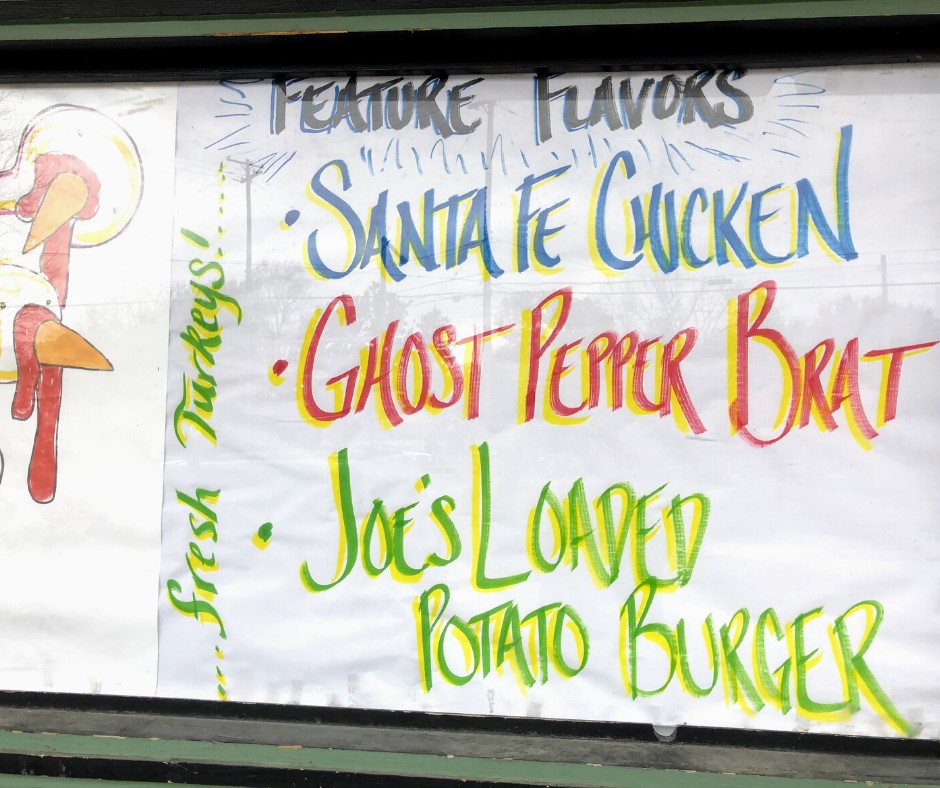 FEATURE FLAVORS
• SANTA FE CHICKEN
• GHOST PEPPER BRAT
• JOE'S LOADED
POTATO BURGER
....fresh Turkeys!......